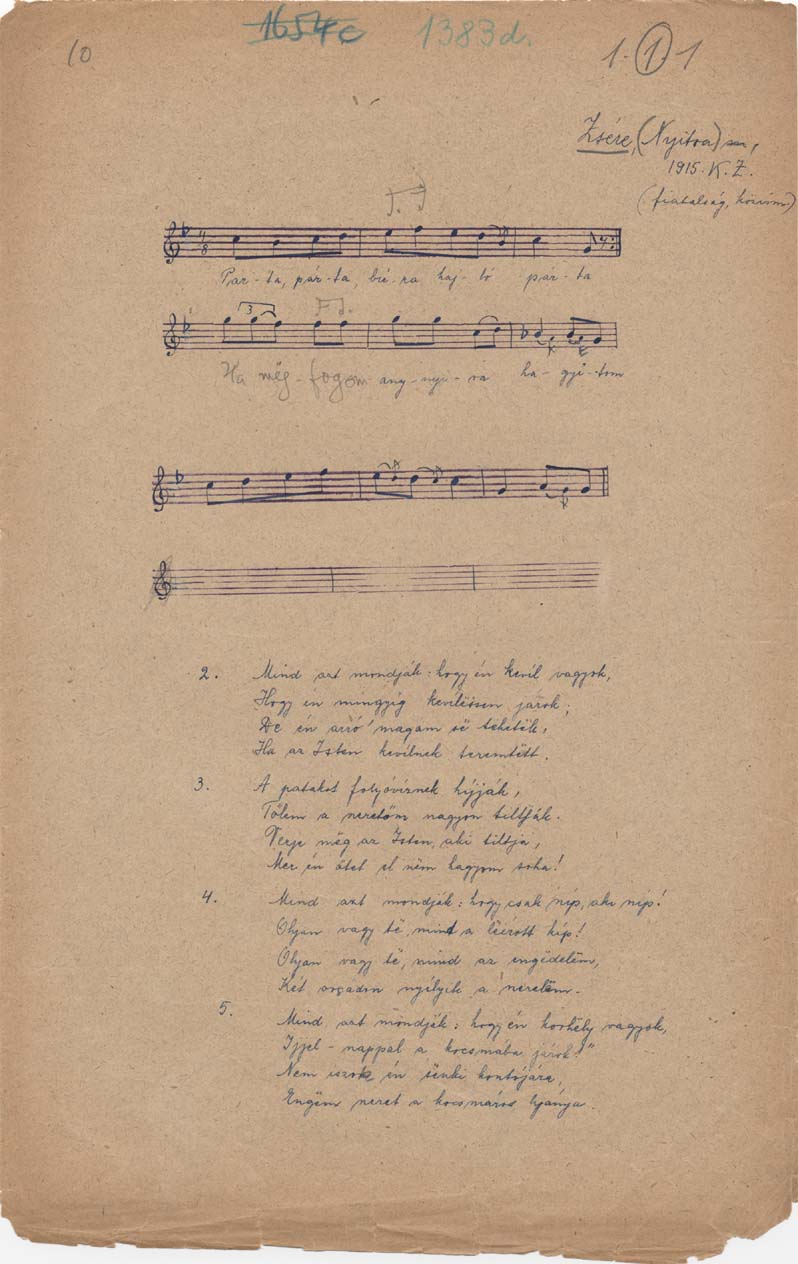 10 1654c 1383d. 1-1-1
Zsére, (Nyitra) m,
1915. K. Z.
(fiatalság,
4/8
Pár-ta, pár-ta, haj-ló pár-ta
3
Ha mëg-fogom any-nyi-ra ha-gyi-tom
2. Mind azt mondják: hogy én kevíl vagyok,
Hogy én mingyíg kevílessen járok;
De én arró magam së tehetëk,
Ha az Isten kevílnek teremtëtt.
3. A patakot folyóvíznek híjják,
Tőlem a szeretőm nagyon tiltják.
Verje mëg az Isten, aki tiltja,
Mer én őtet el nëm hagyom soha!
4. Mind azt mondják: hogy csak szíp, aki szíp!
Olyan vagy të, mint a kép!
Olyan vagy të, mind az engedelëm,
Két orcádon nyílyik a szerelëm.
5. Mind azt mondják: hogy én korhely vagyok,
Íjjel-nappal a kocsmába járok!"
Nem iszok én sënki kontójára,
Engëm szeret a kocsmáros lyánya.